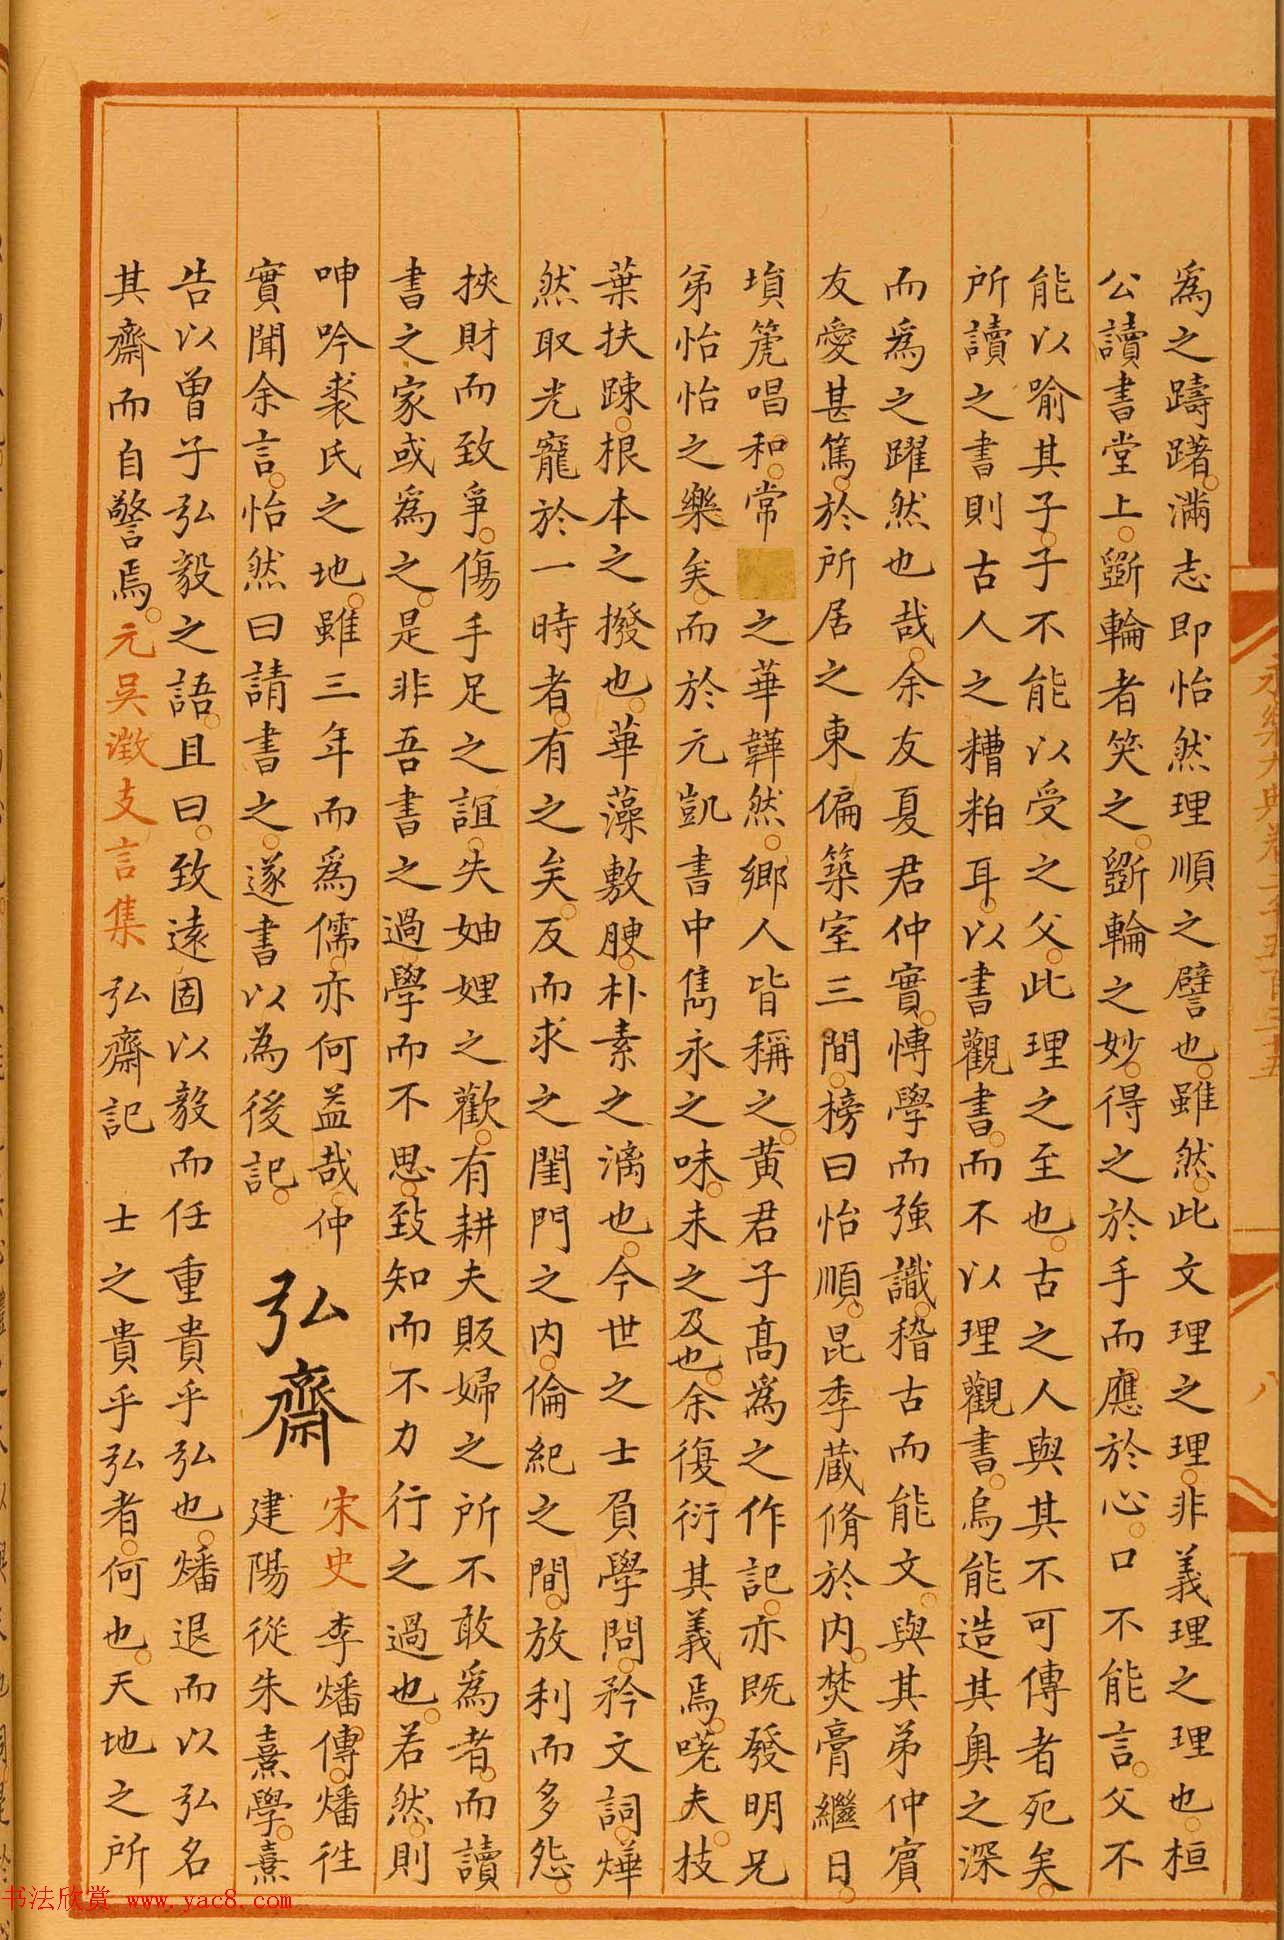 為之躊躇。滿志即怡然理順之譬也。雖然。此文理之理。非義理之理也。桓
公讀書堂上。斵輪者笑之。斵輪之妙。得之於手而應於心。口不能言。父不
能以喻其子。子不能以受之父。此理之至也。古之人與其不可傳者死矣。
所讀之書則古人之糟粕耳。以書觀書。而不以理觀書。烏能造其奧之深
而為之躍然也哉。余友夏君仲實。慱學而強識。稽古而能文。與其弟仲賔
友愛甚篤。於所居之東偏築室三間。榜曰怡順。昆季蔵脩於内。焚膏繼日。
塤箎唱和。常之華韡然。鄉人皆稱之。黄君子髙為之作記。亦既發明兄
弟怡怡之樂矣。而於元凱書中雋永之味。未之及也。余復衍其義焉。嗟夫。枝
葉扶踈。根本之撥也。華藻敷腴。朴素之漓也。今世之士負學問。矜文詞。煒
然取光寵於一時者。有之矣。反而求之閨門之内。倫紀之間。放利而多怨。
挾財而致爭。傷手足之誼。失妯娌之歡。有耕夫販婦之所不敢為者。而讀
書之家或為之。是非吾書之過。學而不思。致知而不力行之過也。若然。則
呻吟裘氏之地。雖三年而為儒。亦何益哉。仲
實聞余言。怡然曰請書之。遂書以為後記。
弘齋
宋史 李燔傳。燔徃
建陽從朱熹學。熹
告以曽子弘毅之語。且曰。致遠固以毅而任重貴乎弘也。燔退而以弘名
其齋而自警焉。元吳澂支言集 弘齋記 士之貴乎弘者。何也。天地之所
永樂大典卷二千五百三十五
八
书法欣赏 www.yac8.com